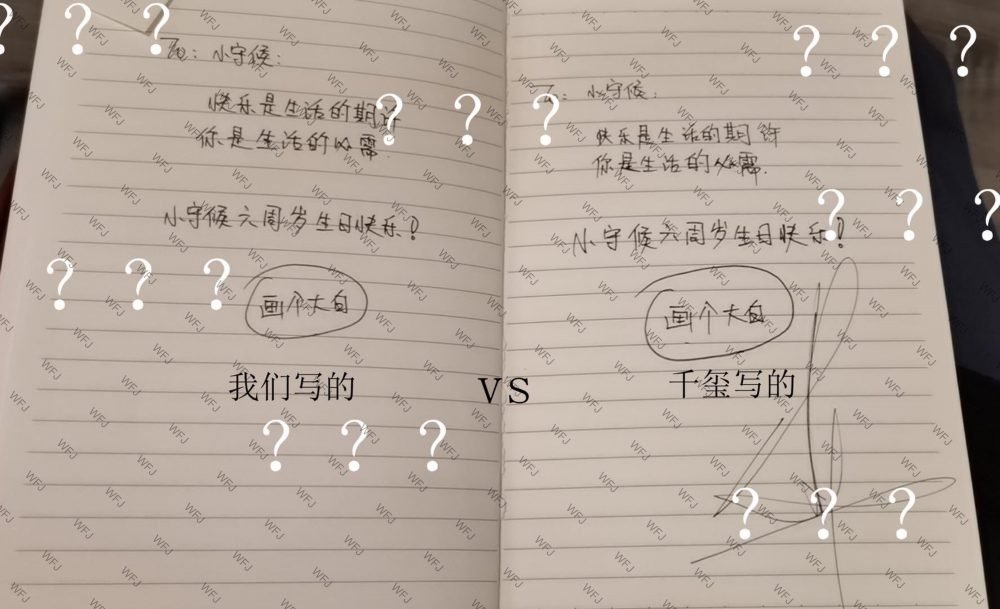 To: 小守候:
快乐是生活的期许
你是生活的必需.
小守候六周岁生日快乐?
画个大白
我们写的
? ? ?
? ? ?
? ? ?
? ? ?
VS
To: 小守候:
快乐是生活的期许
你是生活的必需.
小守候六周岁生日快乐?
画个大白
千玺写的
? ? ?
? ? ?
? ? ?
WFJ